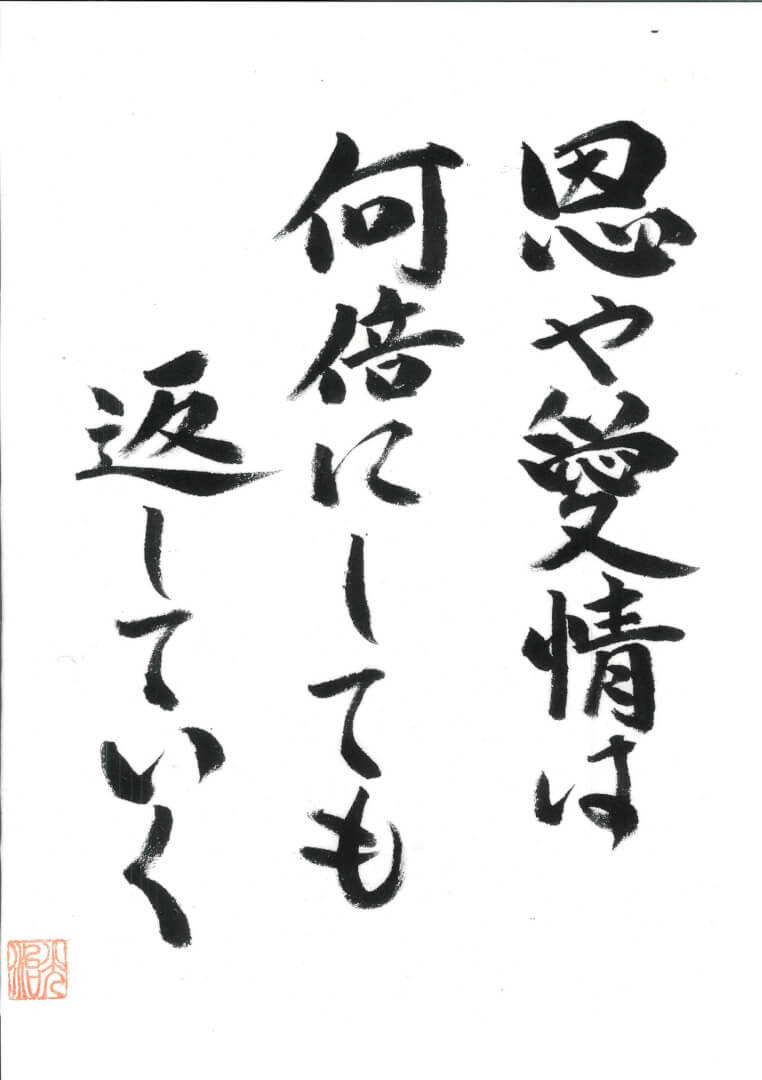 恩や愛情は
何倍にしても
返していく